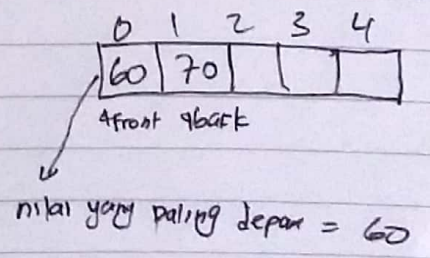 0 1 2 3 4
60 70
↑front ↑back
nilai yang paling depan = 60